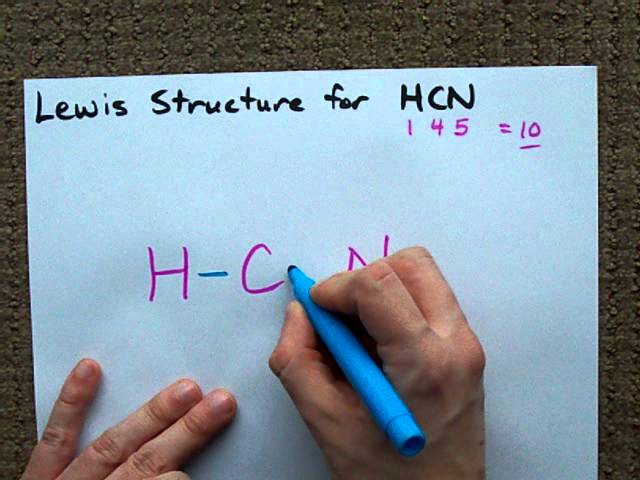 Lewis Structure for HCN
1 4 5 = 10
H - C N